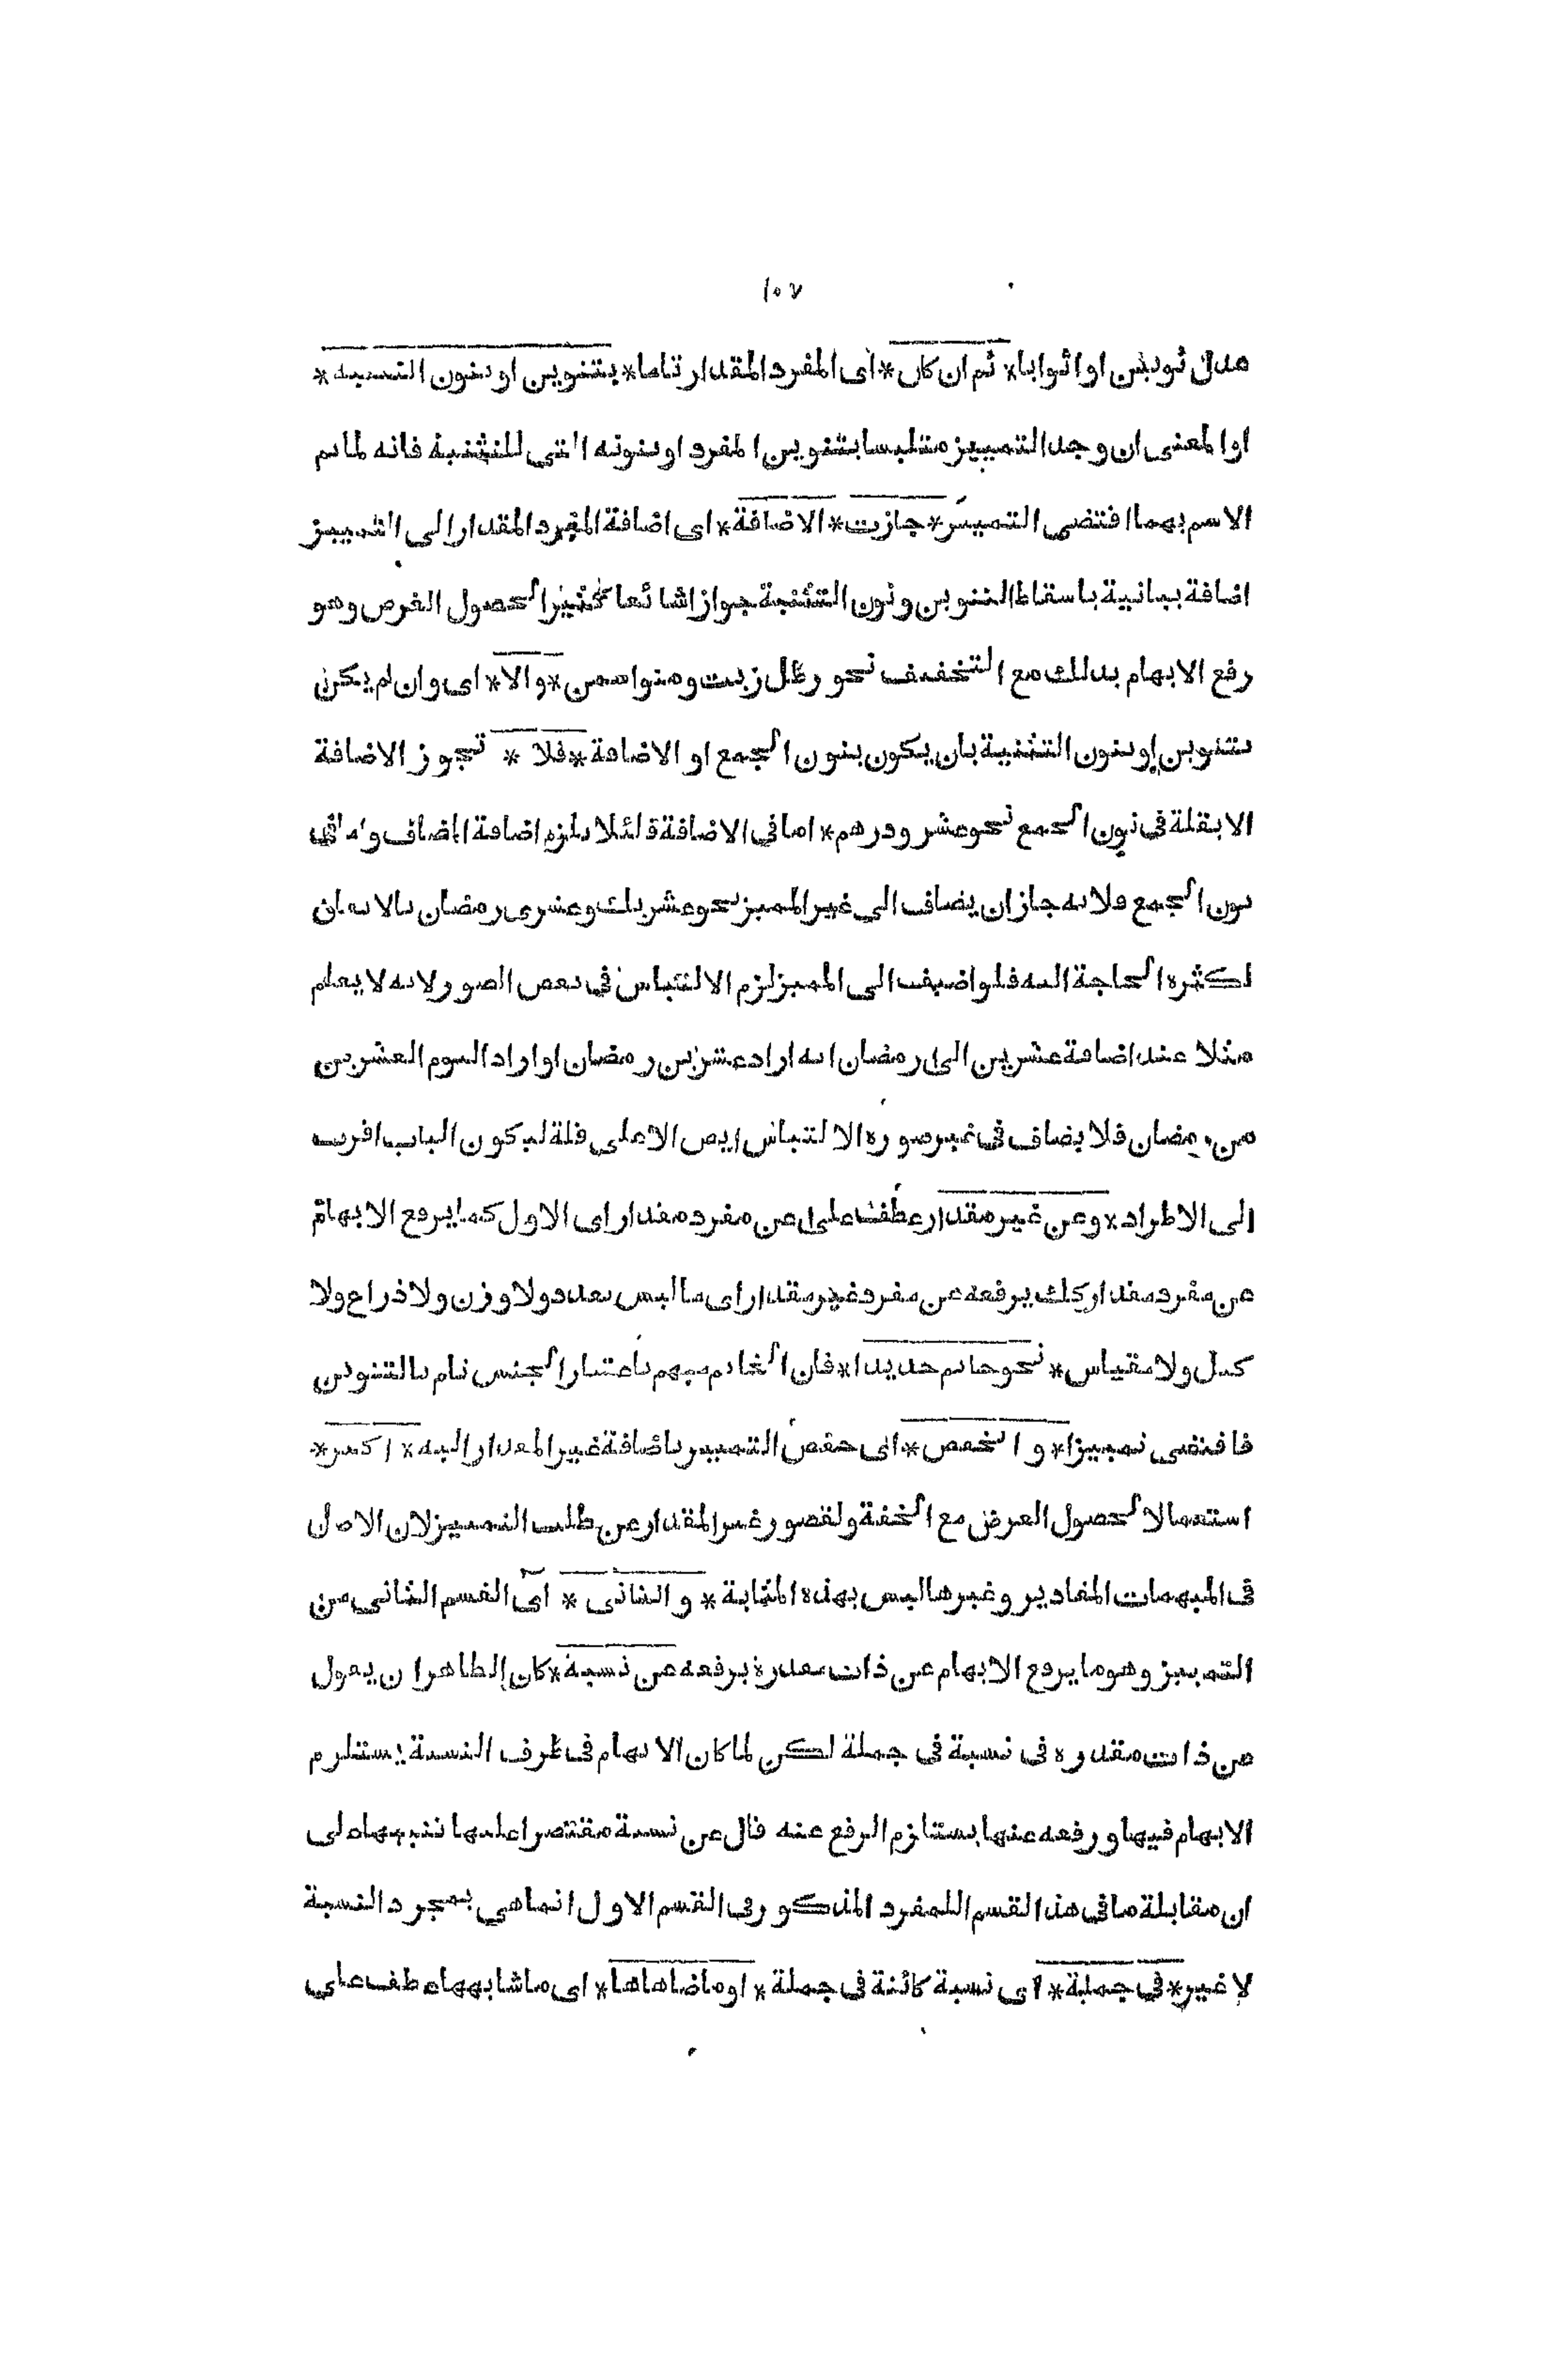 ١٠٧
عدل ثوبين او اثوابا* ثم ان كان* اى المفرد المقدار تاما* بتنوين او بنون التثنيه*
او المعنى ان وجد التمييز متلبسا بتنوين المفرد او بنونه التى للتثنية فانه لما تم
الاسم بهما اقتضى التمييز* جازت* الاضافة* اى اضافة المفرد المقدار الى التمييز
اضافة بيانية باسقاط التنوين ونون التثنية جوازا شائعا كثيرا لحصول الغرض وهو
رفع الابهام بذلك مع التخفيف نحو رطل زيت ومنوا سمن* والا* اى وان لم يكن
بتنوين او بنون التثنية بان يكون بنون الجمع او الاضافة* فلا* تجوز الاضافة
الا بقلة فى نون الجمع نحو عشرو درهم* اما فى الاضافة فلئلا يلزم اضافة المضاف واما فى
نون الجمع فلانه جاز ان يضاف الى غير المميز نحو عشريك وعشرى رمضان بالاتفاق
لكثرة الحاجة اليه فلو اضيف الى المميز لزم الالتباس فى بعض الصور لانه لا يعلم
مثلا عند اضافة عشرين الى رمضان انه اراد عشرين رمضان او اراد اليوم العشرين
من رمضان فلا يضاف فى غير صورة الالتباس ايض الا على قلة ليكون الباب اقرب
الى الاطراد* وعن غير مقدار عطف على عن مفرد مقدار اى الاول كما يرفع الابهام
عن مفرد مقدار كك يرفعه عن مفرد غير مقدار اى ما ليس بعدد ولا وزن ولا ذراع ولا
كيل ولا مقياس* نحو خاتم حديدا* فان الخاتم مبهم باعتبار الجنس تام بالتنوين
فاقتضى تمييزا* و الخفض* اى خفض التمييز باضافة غير المقدار اليه* اكثر*
استعمالا لحصول الغرض مع الخفة ولقصور غير المقدار عن طلب التمييز لان الاصل
فى المبهمات المقادير وغيرها ليس بهذه المثابة* و الثانى* اى القسم الثانى من
التمييز وهو ما يرفع الابهام عن ذات مقدرة يرفعه عن نسبة* كان الظاهر ان يقول
عن ذات مقدرة فى نسبة فى جملة لكن لما كان الابهام فى طرف النسبة يستلزم
الابهام فيها ورفعه عنها يستلزم الرفع عنه قال عن نسبة مقتصرا عليها تنبيها على
ان مقابلة ما فى هذا القسم اللمفرد المذكور فى القسم الاول انما هى بمجرد النسبة
لا غير* فى جملة* اى نسبة كائنة فى جملة* او ما ضاهاها* اى ما شابهها عطف على